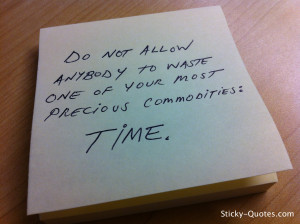 DO NOT ALLOW
ANYBODY TO WASTE
ONE OF YOUR MOST
PRECIOUS COMMODITIES:
TIME.
Sticky-Quotes.com